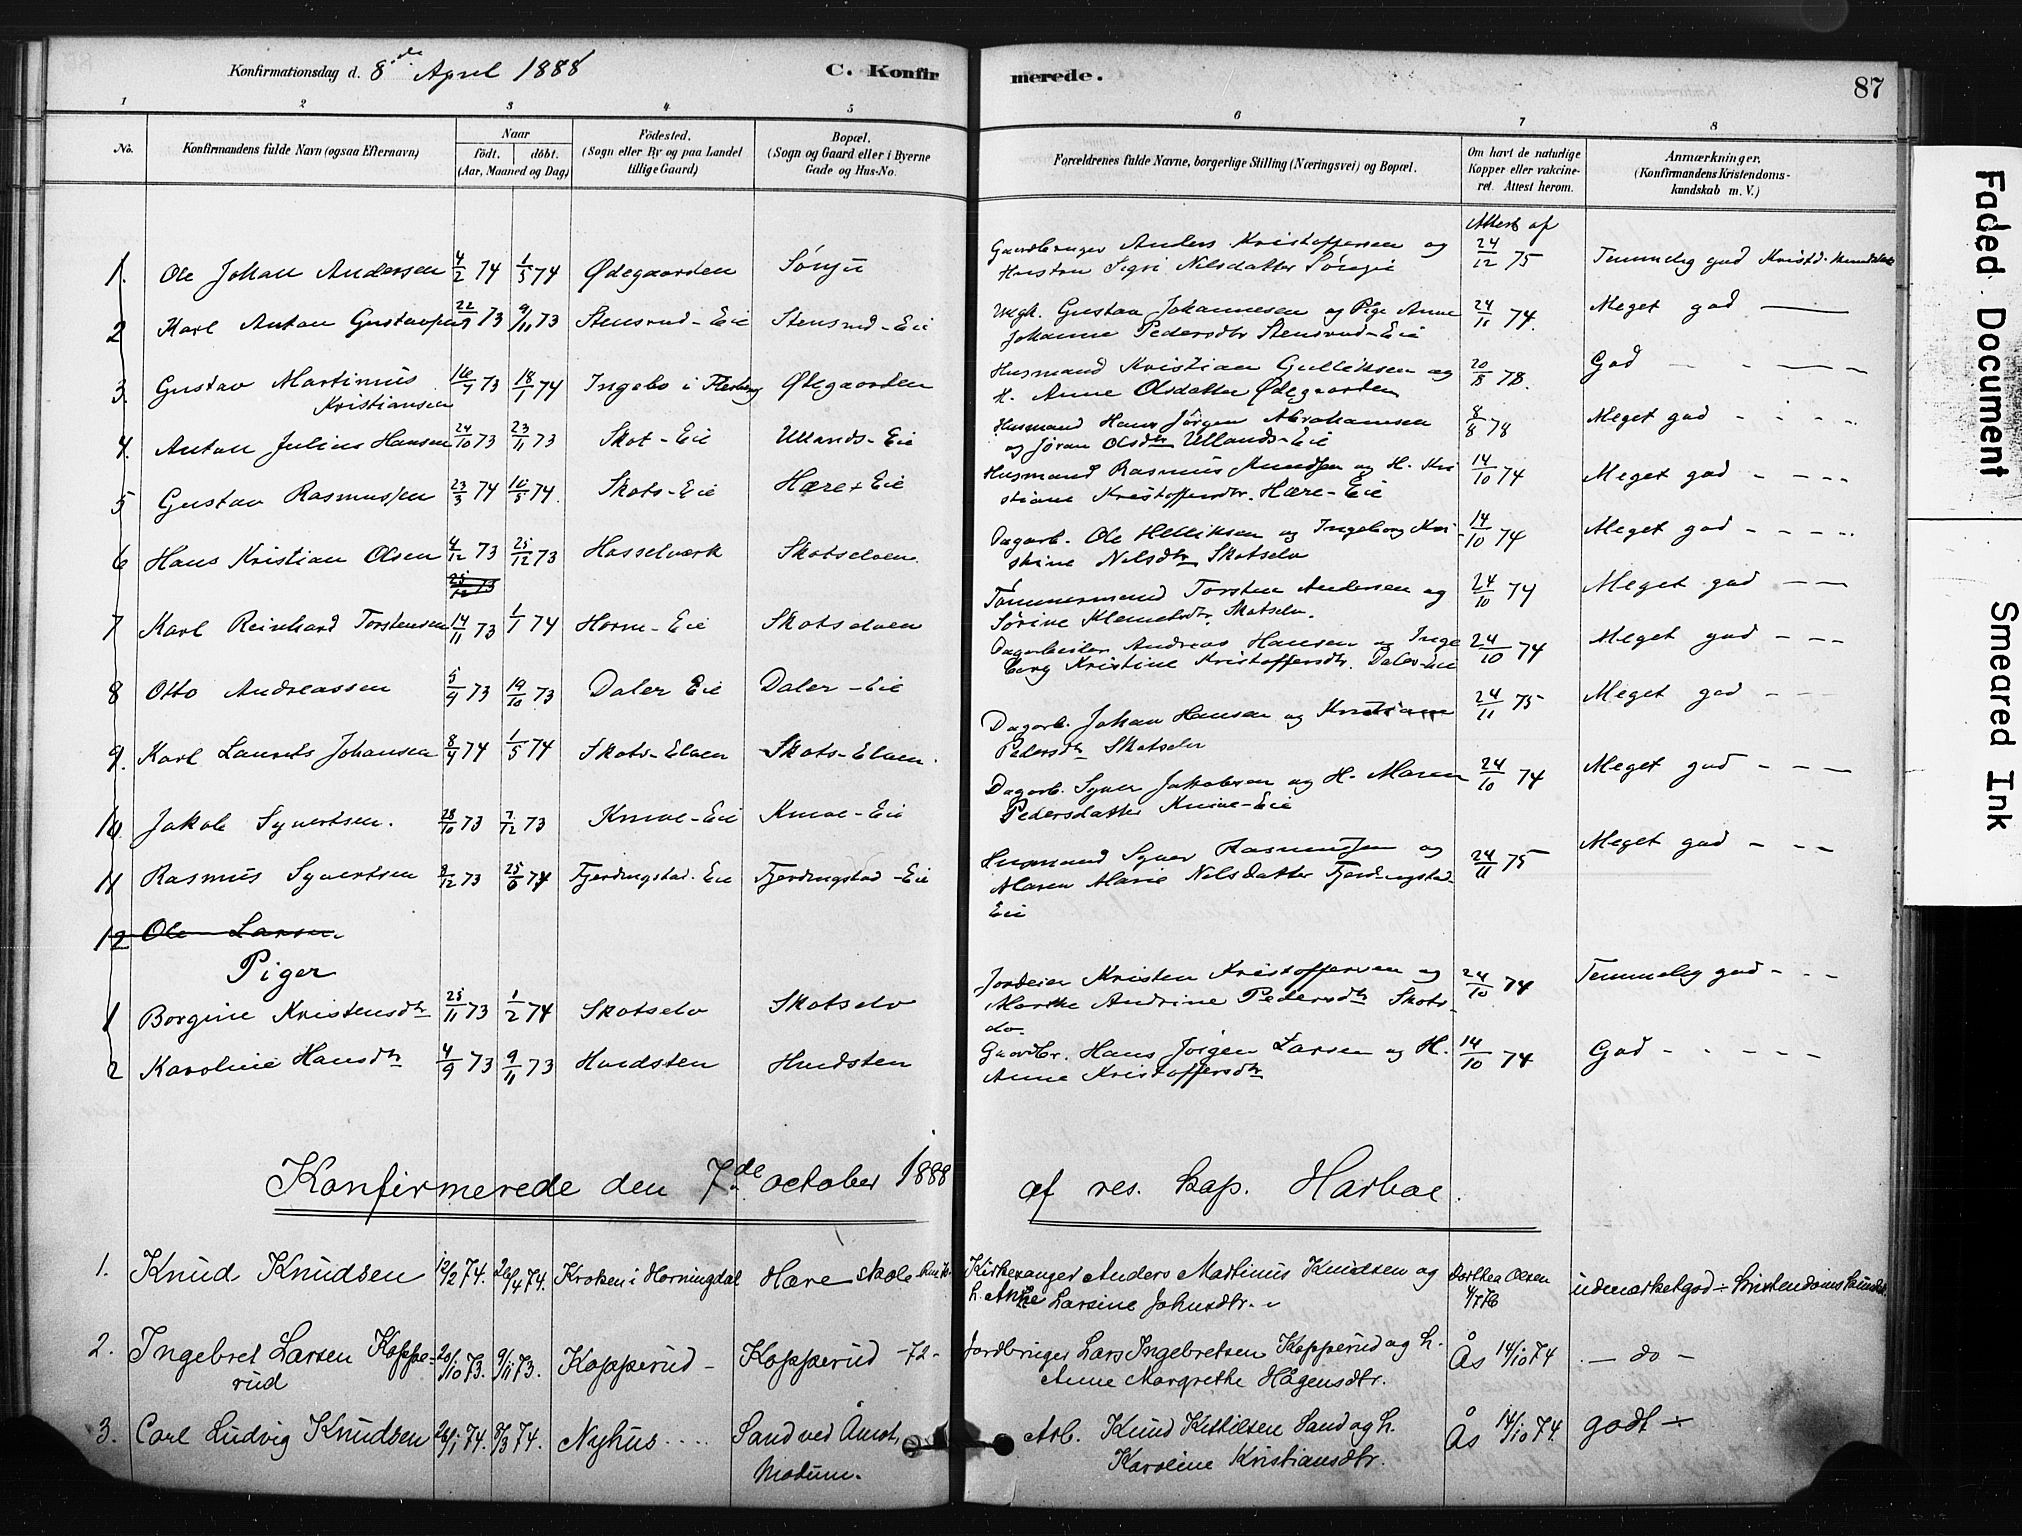 Konfirmationsdag d. 8de April 1888 C. Konfirmerede. 87
1 2 3 4 5 6 7 8
No. Konfirmandens fulde Navn (ogsaa Efternavn) Naar födt. döbt. (Aar, Maaned og Dag) Födested. (Sogn eller By og paa Landet tillige Gaard) Bopæl. (Sogn og Gaard eller i Byerne Gade og Hus-No. Forældrenes fulde Navne, borgerlige Stilling (Næringsvei) og Bopæl. Om havt de naturlige Kopper eller vakcineret. Attest herom. Anmærkninger. (Konfirmandens Kristendomskundskab m. V.)
Attest af
1. Ole Johan Andersen 4/2 74 1/5 74 Ødegaarden Sønju Gaardbruger Anders Kristoffersen og Hustru Sigri Nilsdatter 24/12 75 Temmelig god Kristd.
2 Karl Anton Gustavsen 22/9 73 9/11 73 Stensrud-Eie Stensrud-Eie Ungk. Gustav Johannesen og Pige Anne Johanne Pedersdtr Stensrud-Eie 24/11 74. Meget god
3. Gustav Martinius Kristiansen 16/9 73 18/1 74 Ingebo i Flesberg Ødegaarden Husmand Kristian Gulliksen og H. Anne Olsdatter Ødegaarden 20/8 78. God
4. Anton Julius Hansen 24/10 73 23/11 73 Skot-Eie Ullands-Eie Husmand Hans Jörgen Abrahamsen og Jöran Olsdtr Ullands-Eie 8/8 78 Meget god
5 Gustav Rasmussen 23/3 74 10/5 74. Skots-Eie Hære-Eie Husmand Rasmus Amundsen og H. Kristiane Kristoffersdtr. Hære-Eie 14/10 74 Meget god
6 Hans Kristian Olsen 4/12 73 25/12 73 Hasselverk Skotselven Dagarb. Ole Helliksen og Ingeborg Kristine Nilsdtr Skotselv 14/10 74 Meget god
25/12 73
7 Karl Reinhard Torstensen 14/11 73 1/1 74 Horne-Eie Skotselven Tömmermand Torsten Andersen og Sörine Klemetsdtr. Skotselv. 24/10 74 Meget god
8 Otto Andreassen 5/9 73 19/10 73 Daler Eie Daler-Eie Dagarbeider Andreas Hansen og Ingeborg Kristine Kristoffersdtr. Daler-Eie 24/10 74 Meget god
9. Karl Laurits Johansen 8/4 74 1/5 74 Skots-Elven Skots-Elven. Dagarb. Johan Hansen og Kristiane Pedersdtr Skotselv 24/11 75 Meget god
10 Jakob Syvertsen. 28/10 73 7/12 73 Knive-Eie Knive-Eie Dagarb. Syver Jakobsen og H. Maren Pedersdatter Knive-Eie 24/10 74 Meget god
11 Rasmus Syvertsen 9/12 73 25/6 74 Fjerdingstad-Eie Fjerdingstad-Eie Husmand Syver Rasmussen og Maren Marie Nilsdatter Fjerdingstad-Eie 24/11 75 Meget god
12 Ole Larsen.
Piger
1 Borgine Kristensdtr 25/11 73 1/2 74 Skotselv Skotselv Jordeier Kristen Kristoffersen og Marthe Andrine Pedersdtr Skots- 24/10 74 Temmelig god
2 Karoline Hansdtr 4/9 73 9/11 73 Hundsten Hundsten Gaardbr. Hans Jörgen Larsen og H. Anne Kristoffersdtr 14/10 74 God
Konfirmerede den 7de october 1888 af res. kap. Harboe.
1. Knud Knudsen 12/2 74. 26/4 74. Kroken i Horningdal Hære skole Kirkesanger Anders Martinus Knudsen og h. Anne Larsine Johnsdtr. Dorthea Olsen udmærketgod Kristendomskundsk.
2. Ingebret Larsen Kopperud 20/10 73. 9/11 73. Kopperud - Kopperud -72- Jordbruger Lars Ingebretsen Kopperud og h. Anne Margrethe Hågensdtr. Ås 14/10 74 - do -
3. Carl Ludvig Knudsen 26/1 74. 8/3 74. Nyhus.... Sand ved Åmot, Modum. Arb. Knud Kittilsen Sand og h. Karoline Kristiansdtr. Ås 14/10 74. godt
Faded Document
Smeared Ink